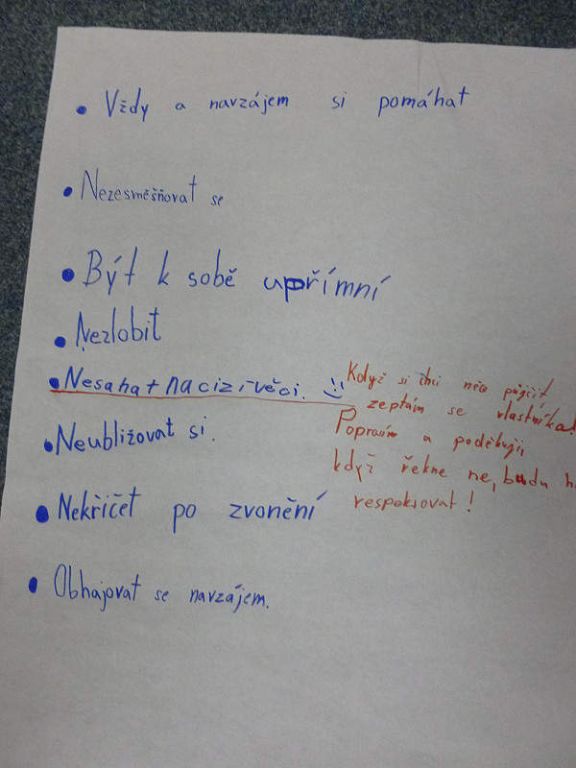 • Vždy a navzájem si pomáhat
• Nezesměšňovat se
• Být k sobě upřímní
• Nezlobit
• Nesahat na cizí věci. :)
• Neubližovat si.
• Nekřičet po zvonění
• Obhajovat se navzájem.
Když si chci něco půjčit
zeptám se vlastníka!
Poprosím a poděkuji
když řekne ne, budu h
respeksovat!